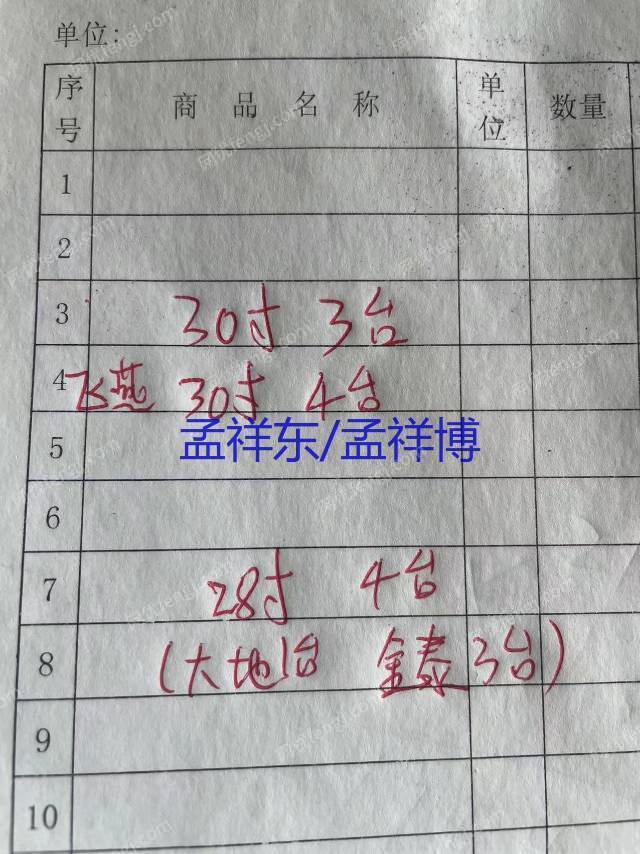 单位:
序号 商品名称 单位 数量
1
2
3 30寸 3台
4 飞燕 30寸 4台
孟祥东/孟祥博
5
6
7 28寸 4台
8 (大地1台 金泰3台)
9
10